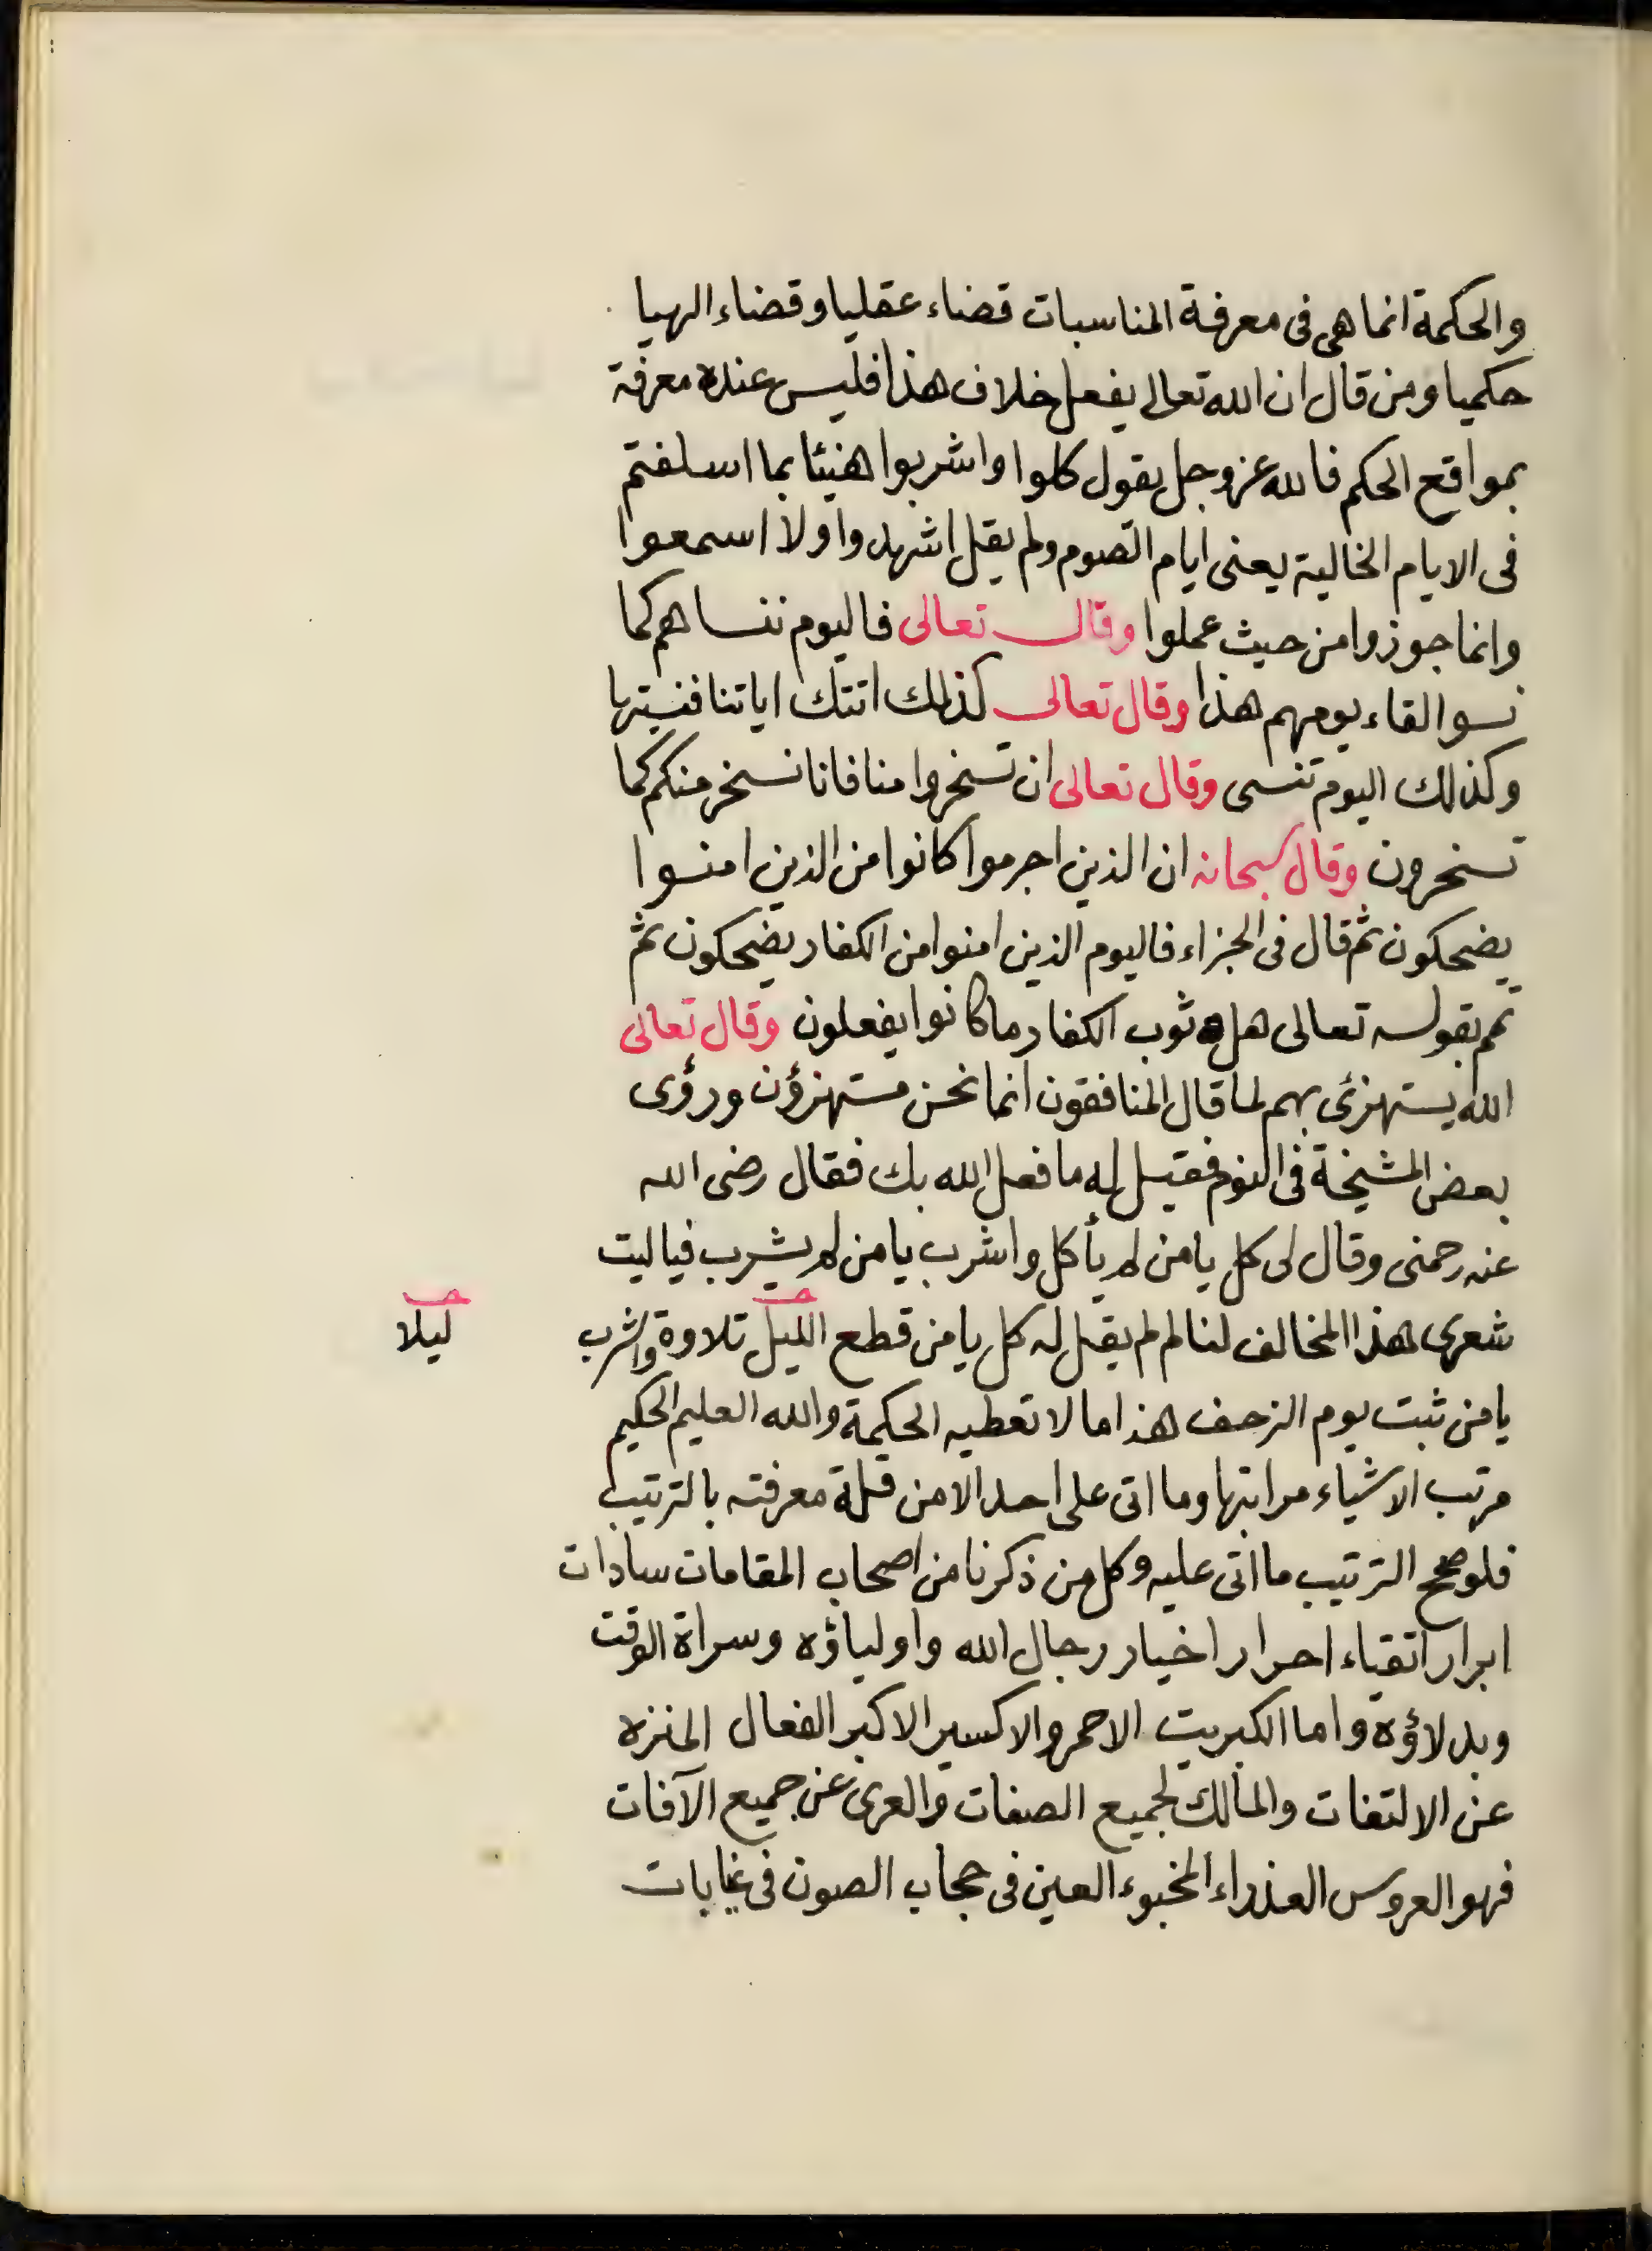 والحكمة انما هى فى معرفة المناسبات قضاء عقليا وقضاء الهيا
حكميا ومن قال ان الله تعالى يفعل خلاف هذا فليس عنده معرفة
بمواقع الحكم فالله عز وجل يقول كلوا واشربوا هنيئا بما اسلفتم
فى الايام الخالية يعنى ايام الصوم ولم يقل اشهدوا ولا اسمعوا
وانما جوزوا من حيث عملوا وقال تعالى فاليوم ننساهم كما
نسوا لقاء يومهم هذا وقال تعالى كذلك اتتك اياتنا فنسيتها
وكذلك اليوم تنسى وقال تعالى ان تسخروا منا فانا نسخر منكم كما
تسخرون وقال سبحانه ان الذين اجرموا كانوا من الذين امنوا
يضحكون ثم قال فى الجزاء فاليوم الذين امنوا من الكفار يضحكون ثم
تمم بقوله تعالى هل ثوب الكفار ما كانوا يفعلون وقال تعالى
الله يستهزئ بهم لما قال المنافقون انما نحن مستهزؤن ورؤى
بعض المشيخة فى النوم فقيل له ما فعل الله بك فقال رضى الله
عنه رحمنى وقال لى كل يا من لم يأكل واشرب يا من لم يشرب فياليت
شعرى هذا المخالف لنا لم لم يقل له كل يا من قطع الليل تلاوة واشرب
ليلا
يا من ثبت يوم الزحف هذا ما لا تعطيه الحكمة والله العليم الحكيم
مرتب الاشياء مراتبها وما اتى على احد الا من قلة معرفته بالترتيب
فلو صحح الترتيب ما اتى عليه وكل من ذكرنا من اصحاب المقامات سادات
ابرار اتقياء احرار اخيار رجال الله واولياؤه وسراة الوقت
وبدلاؤه واما الكبريت الاحمر والاكسير الاكبر الفعال المنزه
عن الالتفات والمالك لجميع الصفات والعرى عن جميع الآفات
فهو العروس العذراء المخبوء العين فى حجاب الصون فى غيابات